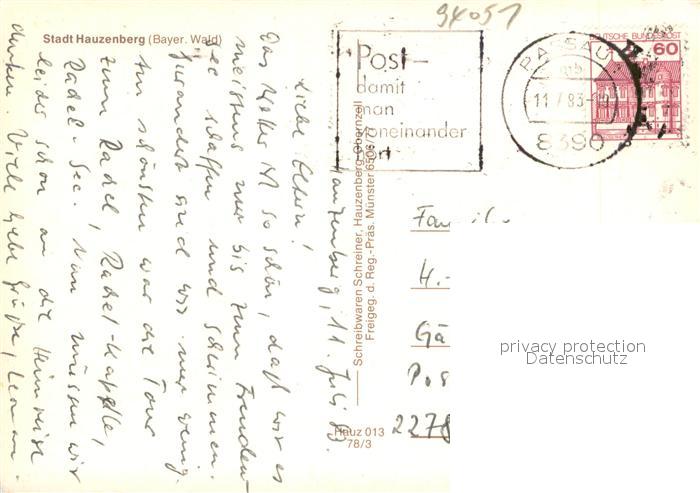 94051
Stadt Hauzenberg (Bayer. Wald)
Post –
damit
man
voneinander
hört
PASSAU
mb
11.7.83-19
8390
DEUTSCHE BUNDESPOST
60
Hauzenberg, 11. Juli 83.
Liebe Eltern!
Das Wetter ist so schön, daß wir es
meistens nur bis zum Freuden-
see schaffen und schwimmen.
Gewandert sind wir nur wenig.
Am schönsten war die Tour
zum Rachel, Rachel-Kapelle,
Rachel-See. Nun müssen wir
leider schon an die Heimreise
denken. Viele liebe Grüße,
Schreibwaren Schreiner, Hauzenberg-Obernzell
Freigeg. d. Reg.-Präs. Münster 6506/77
Hauz 013
78/3
Familie
H.-
Gä
Pos
2278
privacy protection
Datenschutz